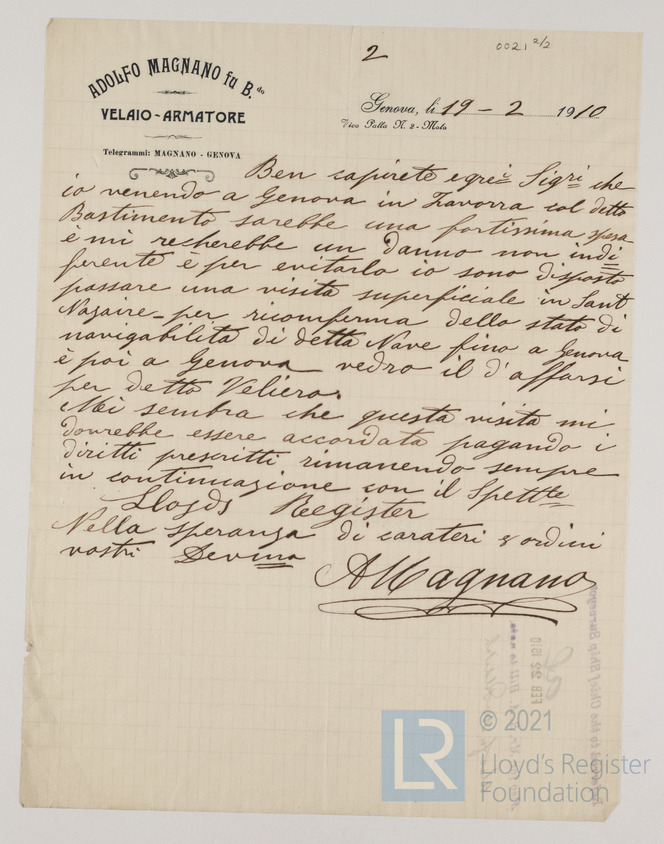 2
0021 2/2
ADOLFO MAGNANO fu B.do
VELAIO-ARMATORE
Telegrammi: MAGNANO - GENOVA
Genova, li 19 - 2 1910
Vico Palla N. 2 - Molo
Ben sapirete egrei Sigri che
io venendo a Genova in Zavorra col detto
Bastimento sarebbe una fortissima spesa
è mi recherebbe un danno non indi
ferente è per evitarlo io sono disposto
passare una visita superficiale in Sant
Nazaire - per riconferma dello stato di
navigabilità di detta Nave fino a Genova
è poi a Genova vedro il d'affarsi
per detto Veliero.
Mi sembra che questa visita mi
dovrebbe essere accordata pagando i
diritti prescritti rimanendo sempre
in continuazione con il Spettte
Lloyds Register
Nella speranza di carateri & ordini
vostri Devmo
AMagnano
FEB 22 1910
to the Chief Ship Surveyor
LR
© 2021
Lloyd's Register
Foundation